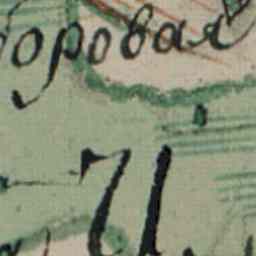 оровая
И